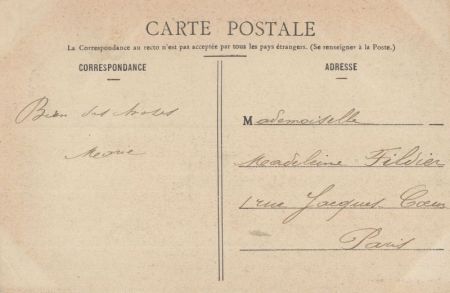 CARTE POSTALE
La Correspondance au recto n'est pas acceptée par tous les pays étrangers. (Se renseigner à la Poste.)
CORRESPONDANCE
Bien des choses
Marie
ADRESSE
Mademoiselle
Madeleine Fildier
1 rue Jacques Coeur
Paris